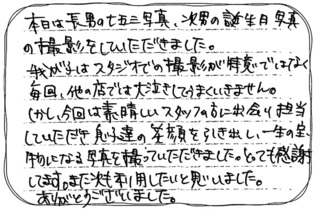 本日は長男の七五三写真、次男の誕生日写真
の撮影をしていただきました。
我が子はスタジオでの撮影が得意ではなく
毎回、他の店では大泣きしてうまくいきません。
しかし、今回は素晴しいスタッフの方に出会り、担当
していただき、息子達の笑顔を引き出し、一生の宝
物になる写真を撮っていただきました。とっても感謝
してます。また次も利用したいと思いました。
ありがとうございました。